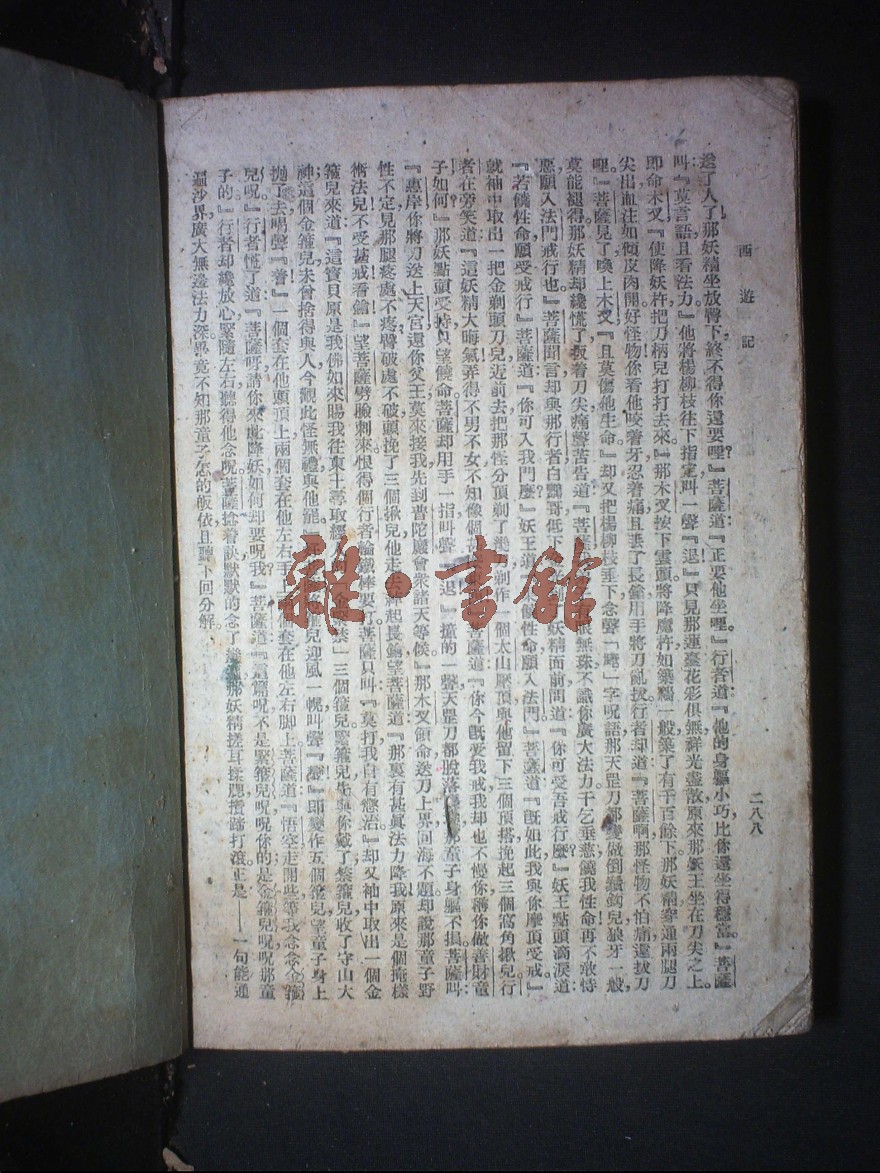 西遊記
二八八
送了人了那妖精坐放臀下終不得你還要哩』菩薩道『正要他坐哩』行者道『他的身軀小巧比你還坐得穩當』菩薩
叫『莫言語且看法力』他將楊柳枝往下指定叫一聲『退』只見那蓮臺花彩俱無祥光盡散原來那妖王坐在刀尖之上
即命木叉『使降妖杵把刀柄兒打打去來』那木叉按下雲頭將降魔杵如築牆一般築了有千百餘下那妖精穿通兩腿刀
尖出血注如傾皮肉開好怪物你看他咬着牙忍着痛且丟了長鎗用手將刀亂拔行者却道『菩薩啊那怪物不怕痛還拔刀
哩』菩薩見了喚上木叉『且莫傷他生命』却又把楊柳枝垂下念聲『唵』字呪語那天罡刀都變做倒鬚鈎兒狼牙一般
莫能褪得那妖精却纔慌了扳着刀尖痛聲苦告道『菩 眼無珠不識你廣大法力千乞垂慈饒我性命再不敢恃
惡願入法門戒行也』菩薩聞言却與那行者白鸚哥低下 妖精面前問道『你可受吾戒行麼』妖王點頭滴淚道
『若饒性命願受戒行』菩薩道『你可入我門麼』妖王道 饒性命願入法門』菩薩道『既如此我與你摩頂受戒』
就袖中取出一把金剃頭刀兒近前去把那怪分頂剃了幾 剃作一個太山壓頂與他留下三個頂搭挽起三個窩角揪兒行
者在旁笑道『這妖精大晦氣弄得不男不女不知像個 菩薩道『你今既受我戒我却也不慢你稱你做善財童
子如何』那妖點頭受持只望饒命菩薩却用手一指叫聲『退』撞的一聲天罡刀都脫落 那童子身軀不損菩薩叫
『惠岸你將刀送上天宮還你父王莫來接我先到普陀巖會衆諸天等候』那木叉領命送刀上界回海不題却說那童子野
性不定見那腿疼處不疼臀破處不破頭挽了三個揪兒他走去綽起長鎗望菩薩道『那裏有甚眞法力降我原來是個掩樣
術法兒不受甚戒看鎗』望菩薩劈臉刺來恨得個行者輪鐵棒要打菩薩只叫『莫打我自有懲治』却又袖中取出一個金
箍兒來道『這寶貝原是我佛如來賜我往東土尋取經人的『金緊禁』三個箍兒緊箍兒先與你戴了禁箍兒收了守山大
神這個金箍兒未曾捨得與人今觀此怪無禮與他罷』 兒迎風一幌叫聲『變』即變作五個箍兒望童子身上
拋了去喝聲『着』一個套在他頭頂上兩個套在他左右手上 個套在他左右脚上菩薩道『悟空走開些等我念念金箍
兒呪』行者慌了道『菩薩呀請你來此降妖如何却要呪我』菩薩道『這篇呪不是緊箍兒呪呪你的是金箍兒呪呪那童
子的』行者却纔放心緊隨左右聽得他念呪菩薩捻着訣默默的念了幾 那妖精搓耳揉腮攢蹄打滾正是——一句能通
遍沙界廣大無邊法力深畢竟不知那童子怎的皈依且聽下回分解
雜·書館